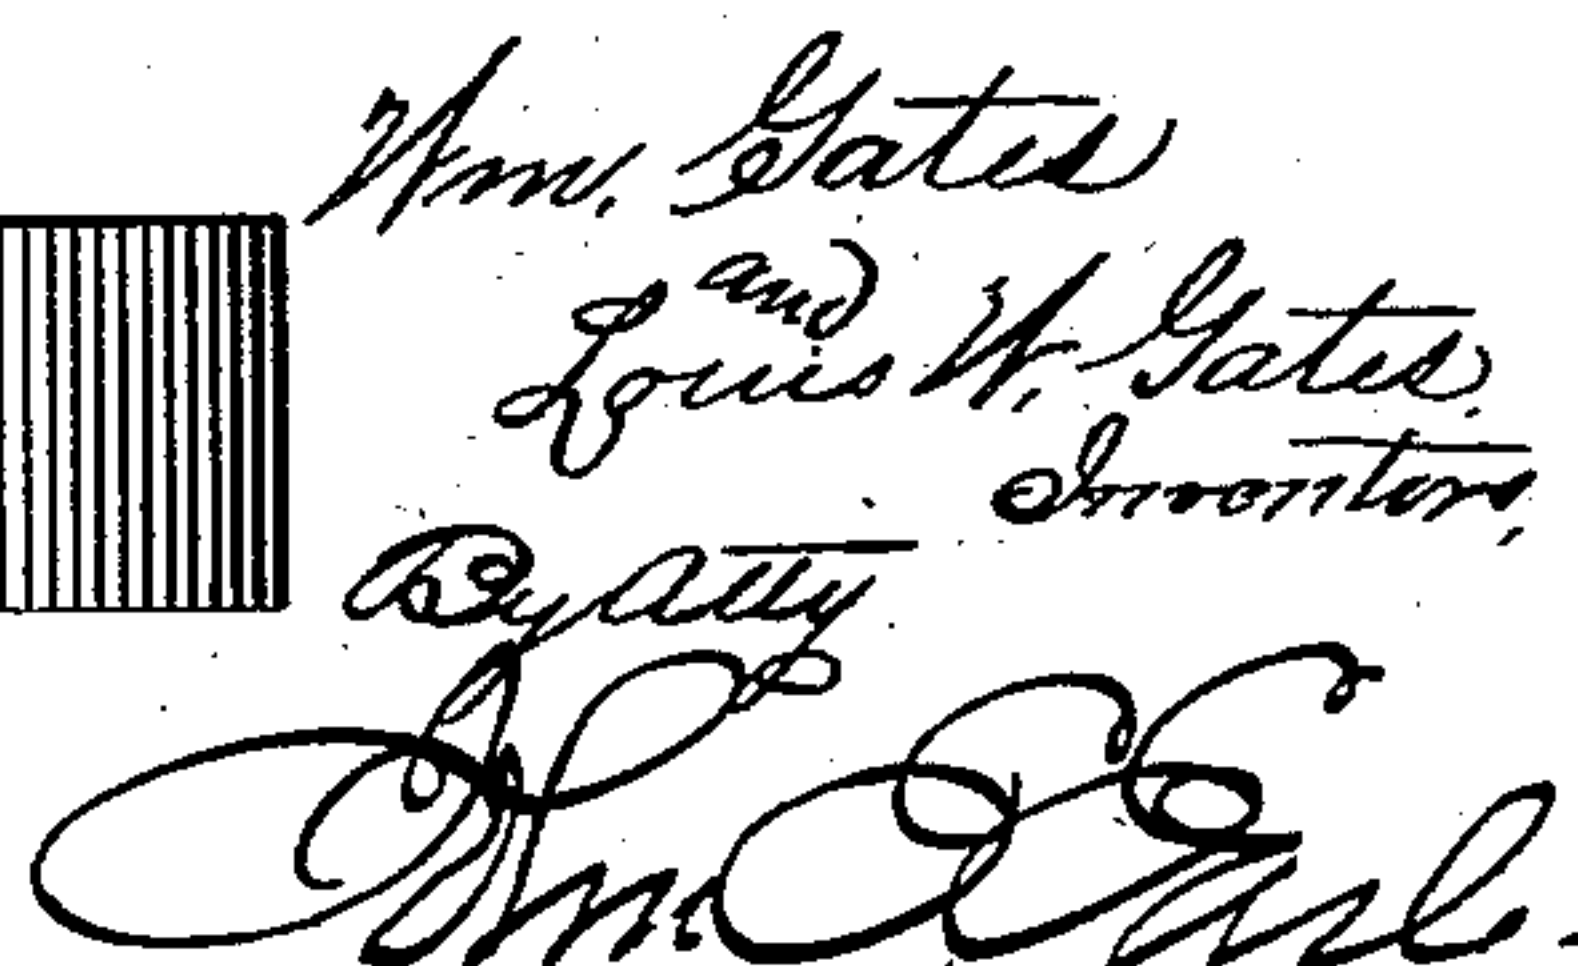 Wm. Gates
and
Louis W. Gates.
Inventors,
By Atty
Wm. E. Earle